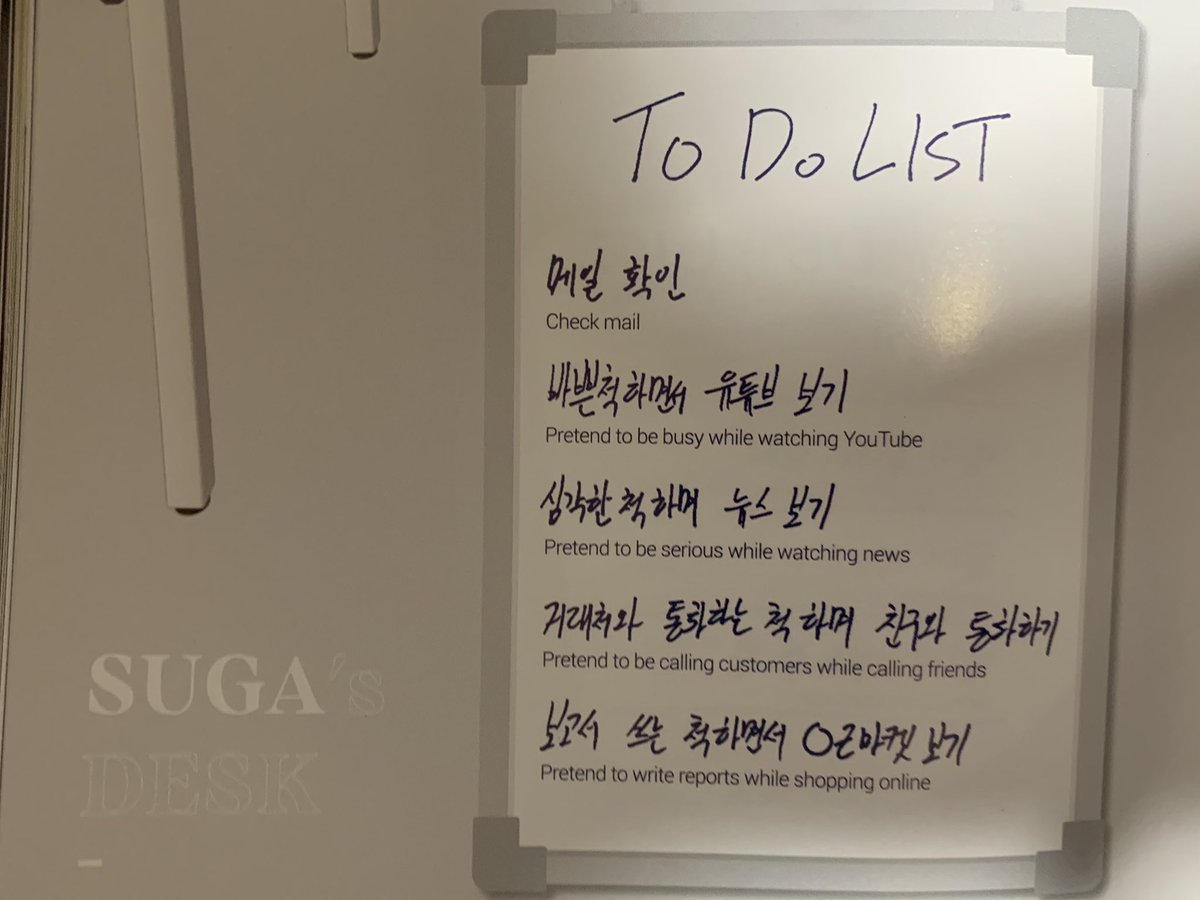 TO DO LIST
메일 확인
Check mail
바쁜척하면서 유튜브 보기
Pretend to be busy while watching YouTube
심각한 척하며 뉴스 보기
Pretend to be serious while watching news
거래처와 통화하는 척 하며 친구와 통화하기
Pretend to be calling customers while calling friends
보고서 쓰는 척하면서 O근마켓 보기
Pretend to write reports while shopping online
SUGA's
DESK